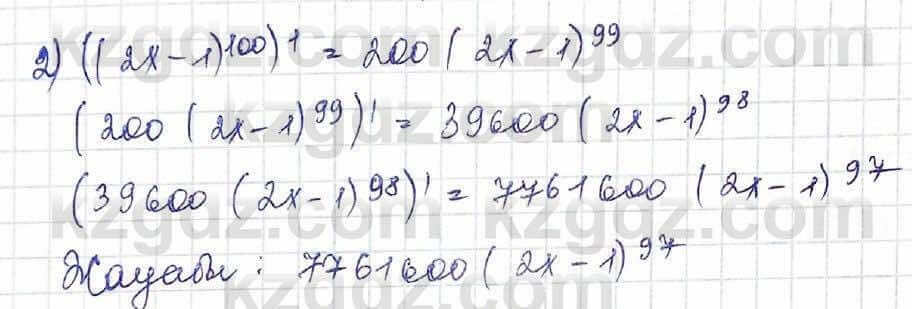 2) ((2x-1)^100)' = 200(2x-1)^99
(200(2x-1)^99)' = 39600(2x-1)^98
(39600(2x-1)^98)' = 7761600(2x-1)^97
Жауабы: 7761600(2x-1)^97